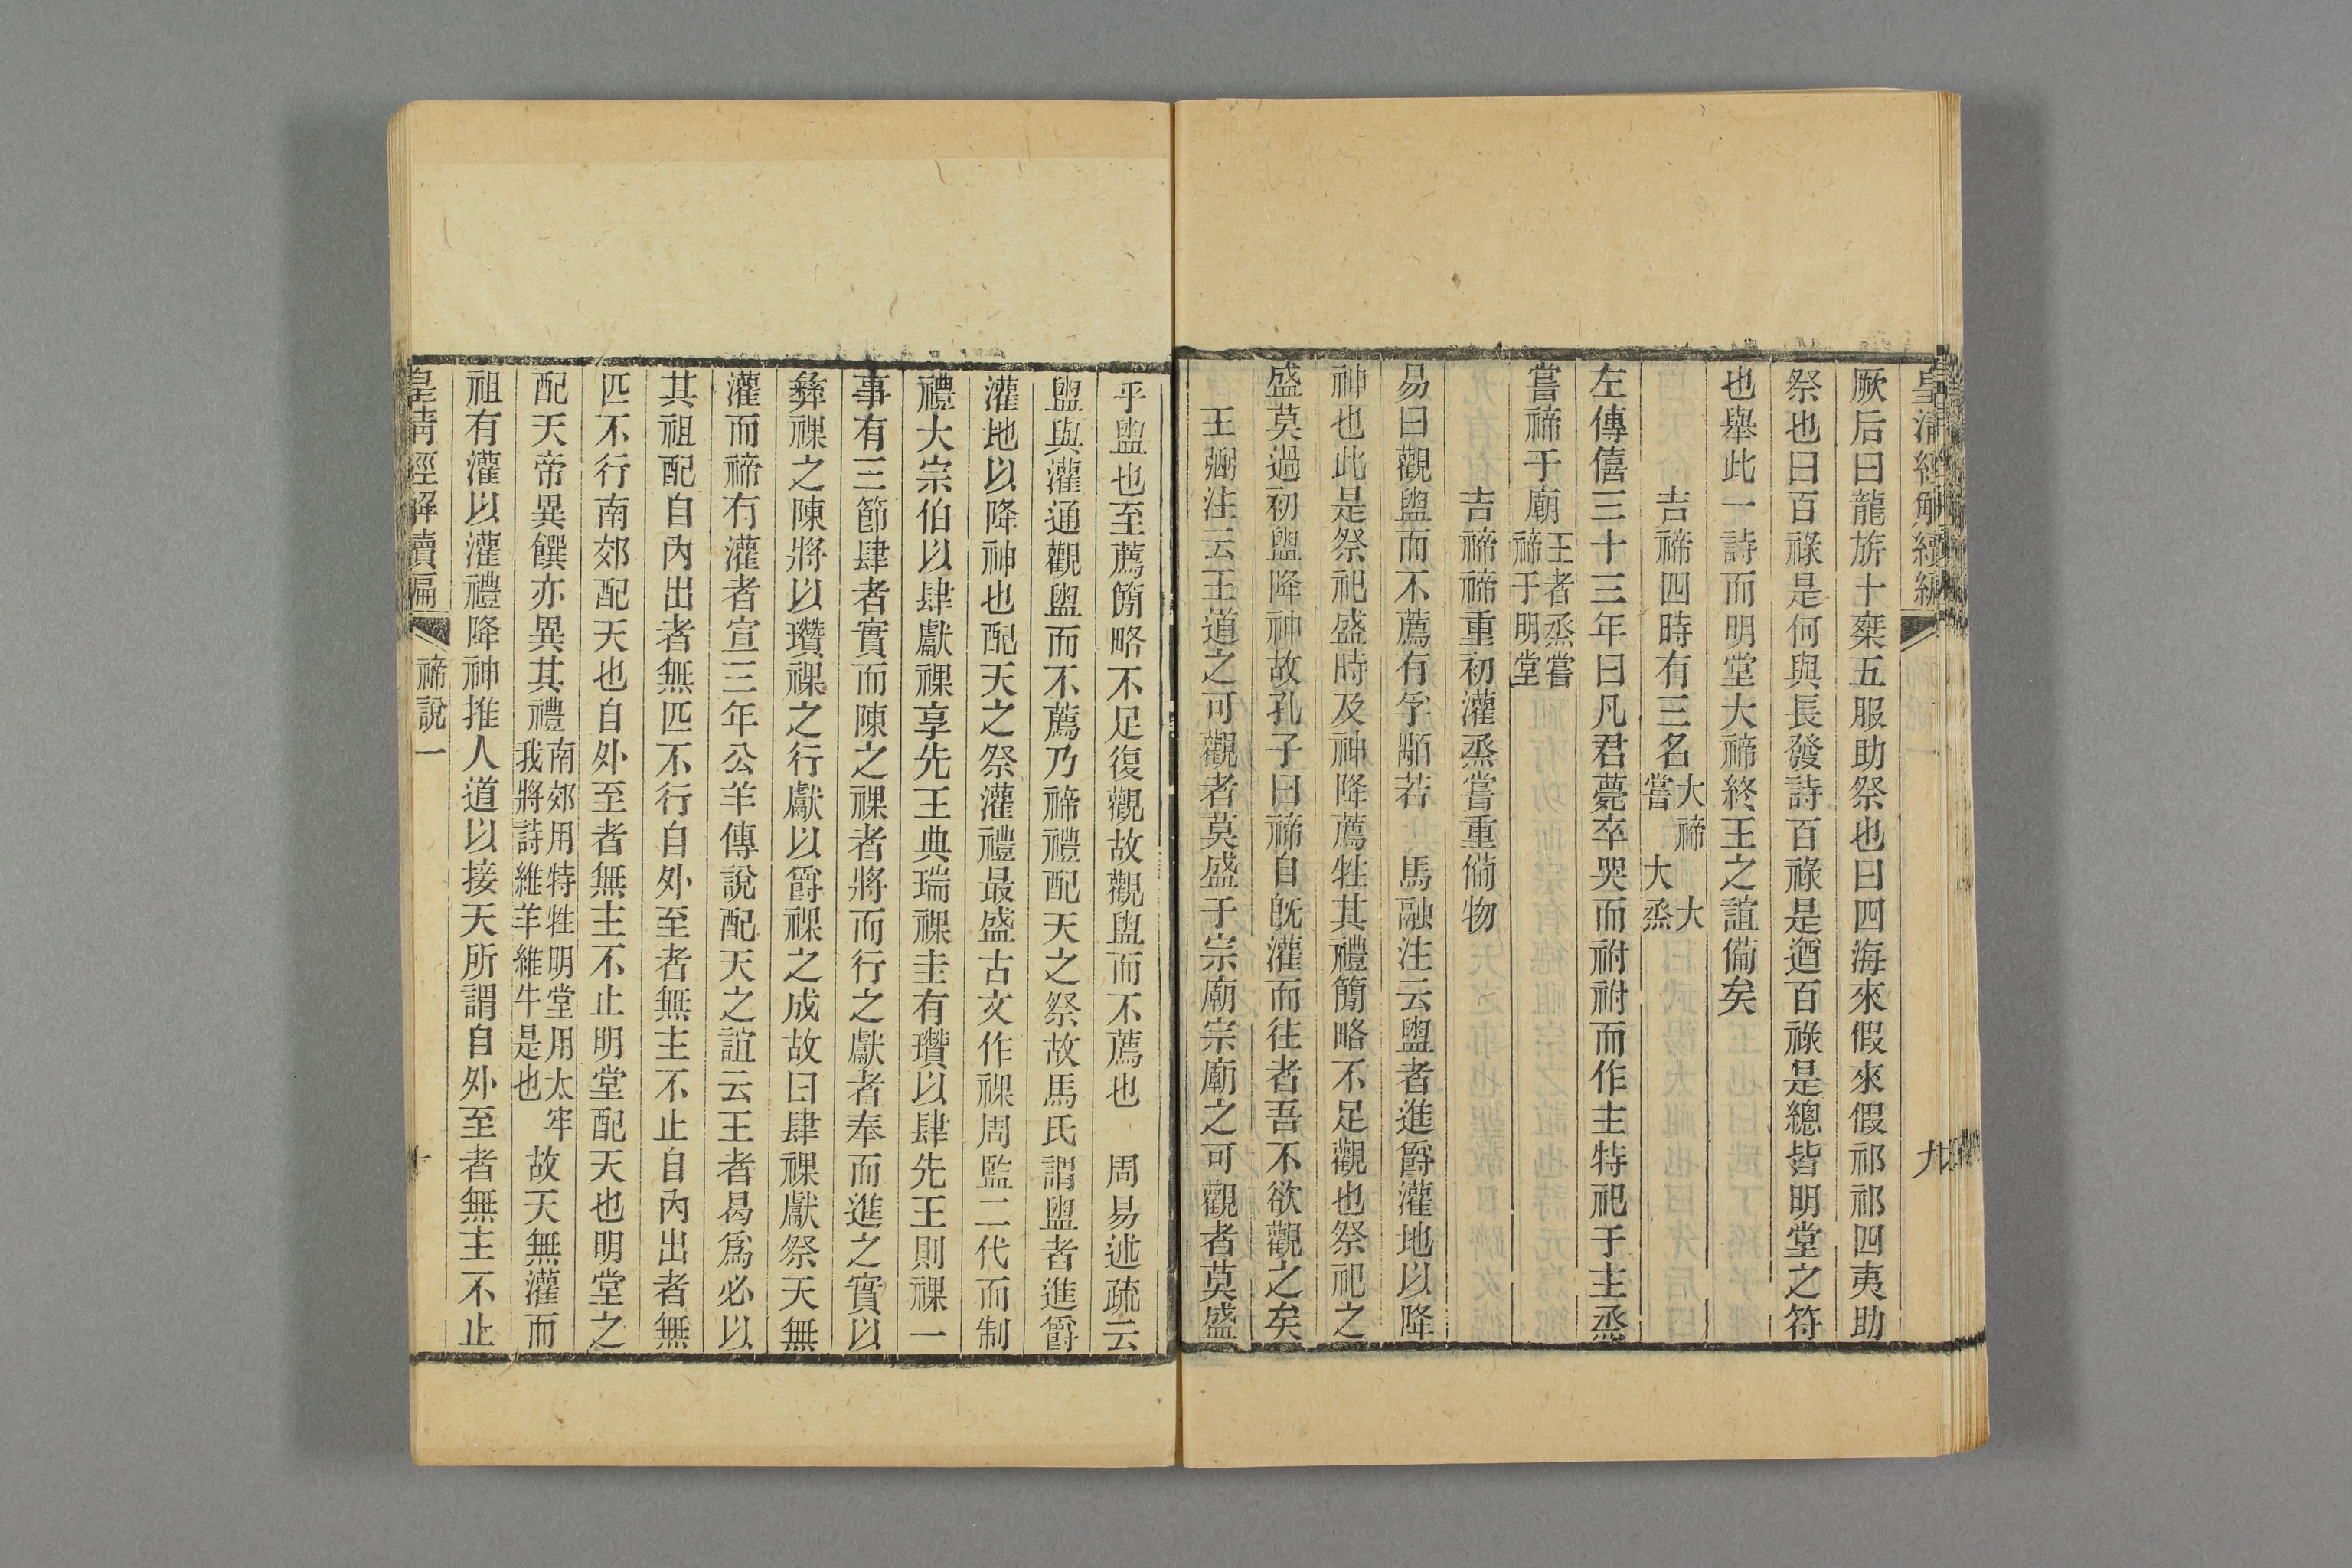 皇清經解續編
九
厥后曰龍旂十椉五服助祭也曰四海來假來假祁祁四夷助
祭也曰百祿是何與長發詩百祿是遒百祿是總皆明堂之符
也舉此一詩而明堂大禘終王之誼備矣
吉禘四時有三名大禘大嘗大烝
左傳僖三十三年曰凡君薨卒哭而祔祔而作主特祀于主烝
嘗禘于廟王者烝嘗禘于明堂
吉禘禘重初灌烝嘗重備物
易曰觀盥而不薦有孚顒若 馬融注云盥者進爵灌地以降
神也此是祭祀盛時及神降薦牲其禮簡略不足觀也祭祀之
盛莫過初盥降神故孔子曰禘自旣灌而往者吾不欲觀之矣
王弼注云王道之可觀者莫盛于宗廟宗廟之可觀者莫盛
乎盥也至薦簡略不足復觀故觀盥而不薦也 周易述疏云
盥與灌通觀盥而不薦乃禘禮配天之祭故馬氏謂盥者進爵
灌地以降神也配天之祭灌禮最盛古文作祼周監二代而制
禮大宗伯以肆獻祼享先王典瑞祼圭有瓚以肆先王則祼一
事有三節肆者實而陳之祼者將而行之獻者奉而進之實以
彝祼之陳將以瓚祼之行獻以爵祼之成故曰肆祼獻祭天無
灌而禘有灌者宣三年公羊傳說配天之誼云王者曷爲必以
其祖配自內出者無匹不行自外至者無主不止自內出者無
匹不行南郊配天也自外至者無主不止明堂配天也明堂之
配天帝異饌亦異其禮南郊用特牲明堂用太牢我將詩維羊維牛是也故天無灌而
祖有灌以灌禮降神推人道以接天所謂自外至者無主不止
皇清經解續編
禘說一
十